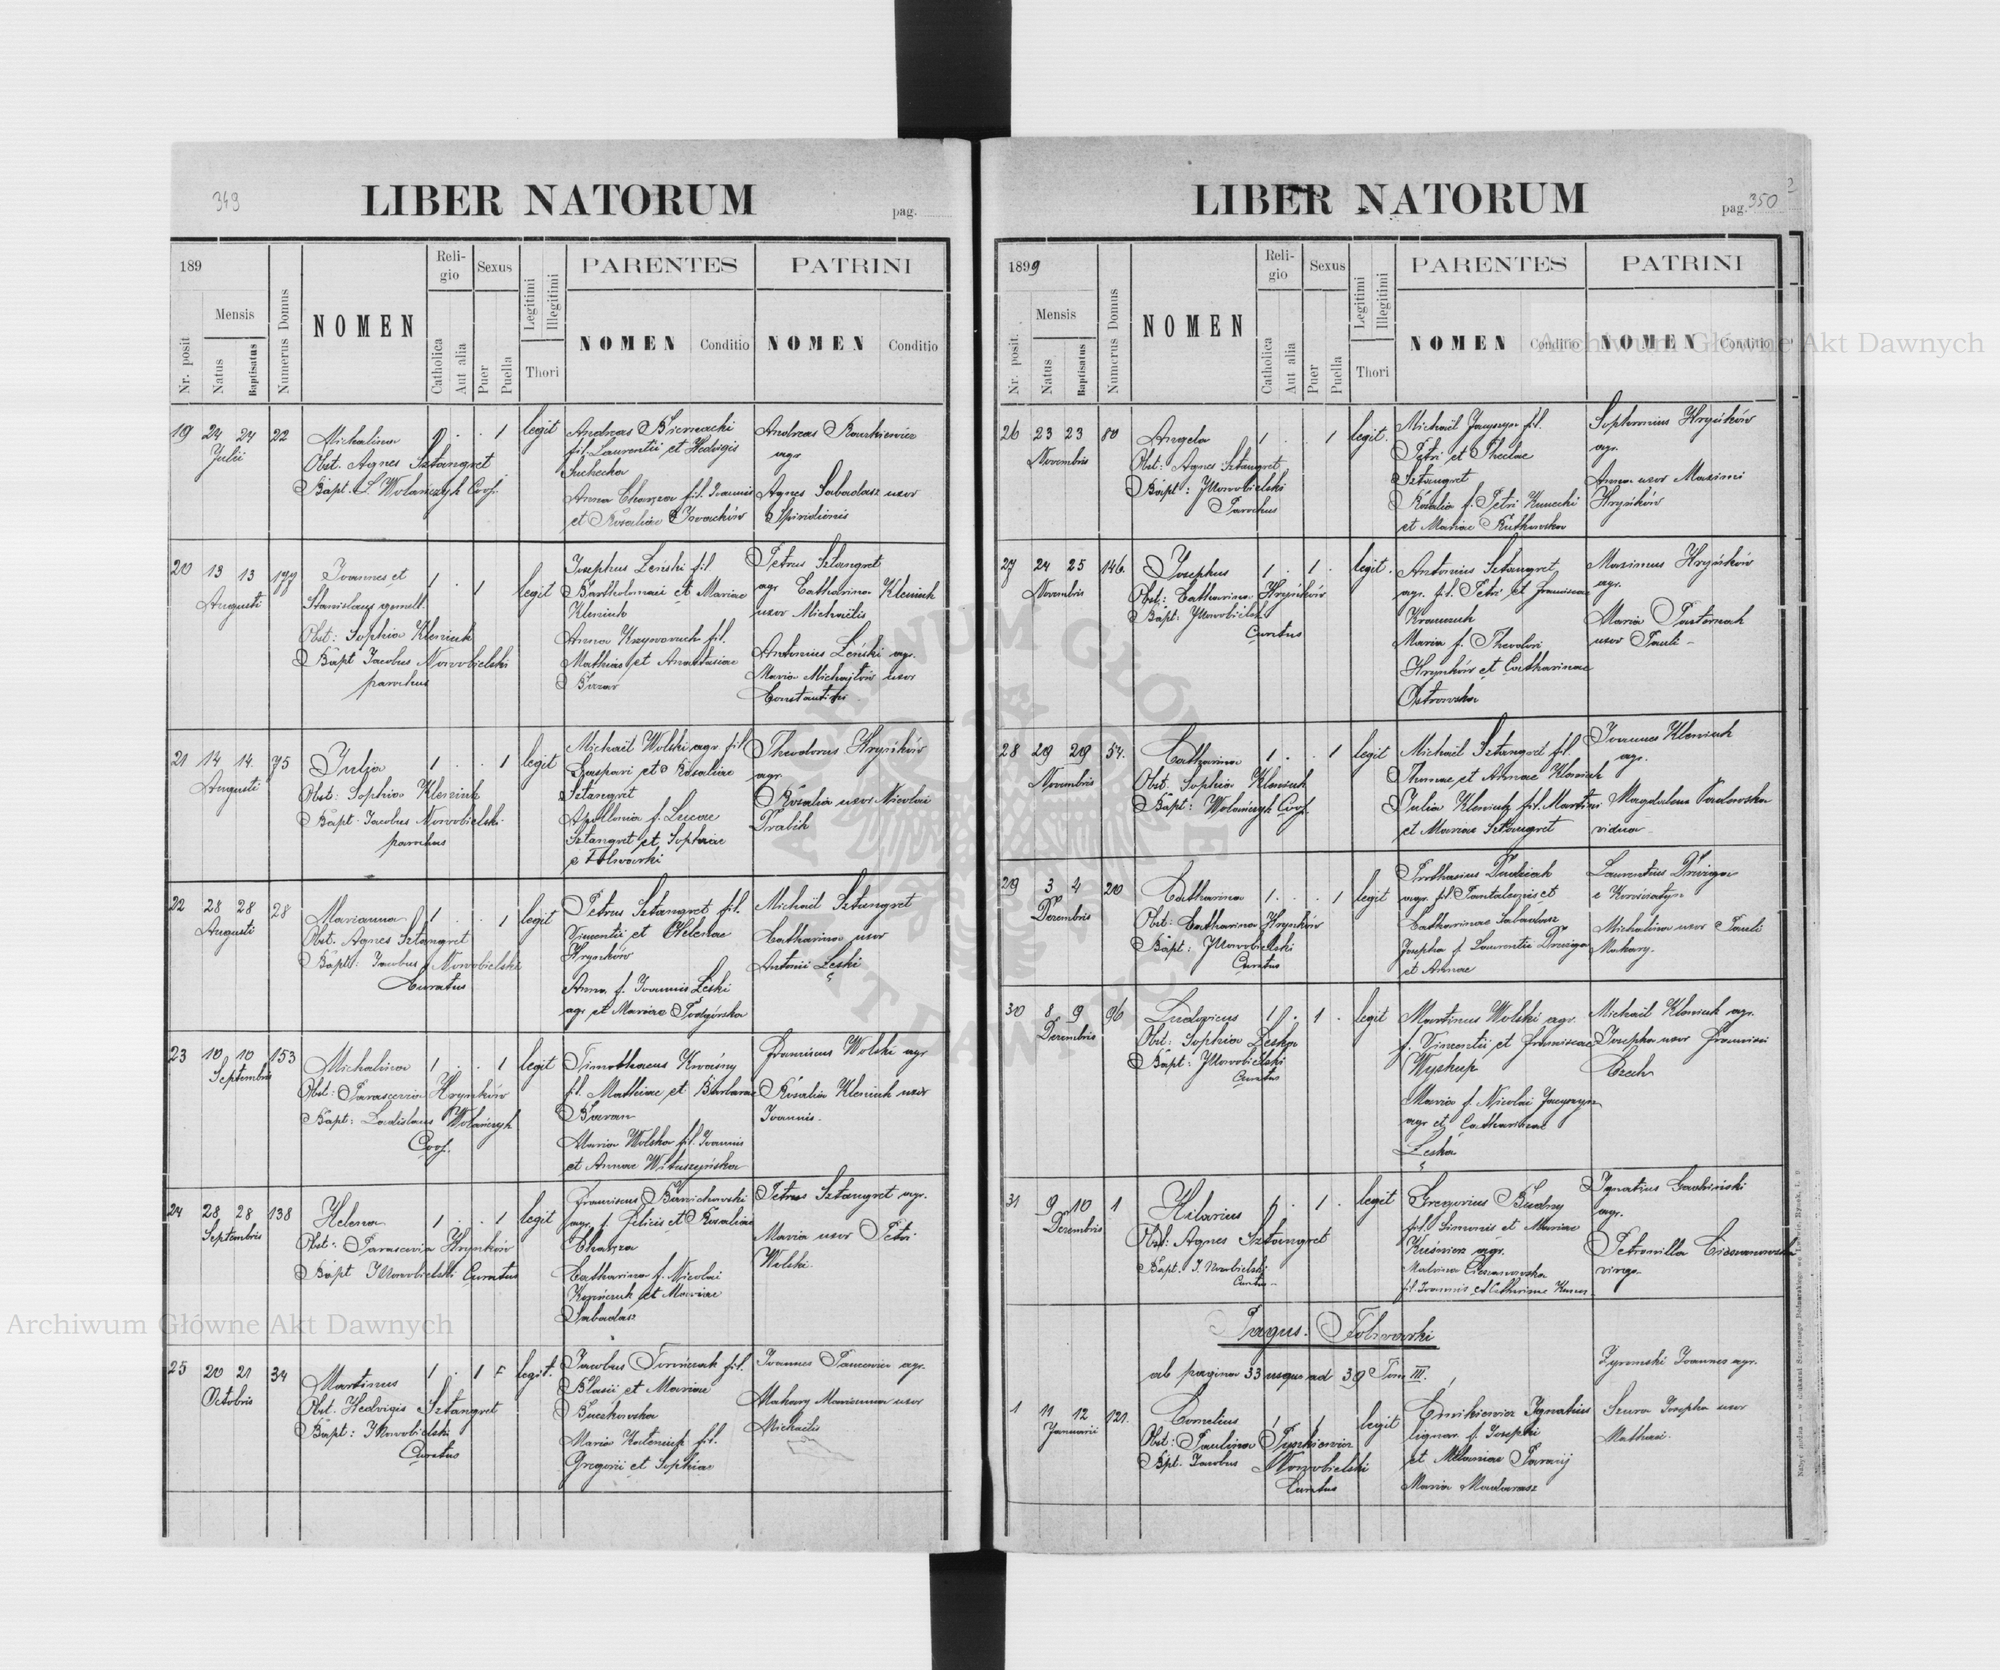 349
LIBER NATORUM
pag.
189
Nr. posit
Mensis
Natus
Baptisatus
Numerus Domus
NOMEN
Reli-
gio
Catholica
Aut alia
Sexus
Puer
Puella
Legitimi
Illegitimi
Thori
PARENTES
NOMEN
Conditio
PATRINI
NOMEN
Conditio
19 24 24 22
Julii
Michalina
Obst. Agnes Sztangret
Bapt. L Wolańczyk Coop.
1 . . 1 legit
Andreas Biernacki
fil. Laurentii et Hedvigis
Suchecka
Anna Charza fil. Joannis
et Rosaliae
Andreas
agr.
Agnes Sabadasz uxor
Spiridionis
20 13 13 177
Augusti
Joannes et
Stanislaus gemell.
Obst: Sophia Kleniuk
Bapt Jacobus Nowobielski
parochus
1 . 1 legit
Josephus Leński fil.
Bartholomaei et Mariae
Kleniuk
Anna fil.
Mathiae et Anastasiae
Petrus Sztangret
agr Catharina Kleniuk
uxor Michaelis
Antonius Leński agr.
Maria Michajłów uxor
Constantini
21 14 14. 75
Augusti
Julia
Obst: Sophia Kleniuk
Bapt. Jacobus Nowobielski
parochus
1 . . 1 legit
Michael Wolski agr fil
Gaspari et Rosaliae
Sztangret
Apollonia f. Lucae
Sztangret et Sophiae
e Folwarki
Theodorus Hryńków
agr.
Rosalia uxor Nicolai
Drabik
22 28 28 28
Augusti
Marianna
Obst. Agnes Sztangret
Bapt. Jacobus Nowobielski
Curatus
1 . . 1 legit
Petrus Sztangret fil.
Vincentii et Helenae
Hryńków
Anna f. Joannis Leski
agr et Mariae Podgórska
Michael Sztangret
Catharina uxor
Antonii Leski
23 10 10 153
Septembris
Michalina
Obst: Parascevia Hryńków
Bapt: Ladislaus Wolańczyk
Coop.
1 . . 1 legit
Timothaeus Kwaśny
fil. Mathiae et Barbarae
Baran
Maria Wolska fil. Joannis
et Annae Wituszyńska
Franciscus Wolski agr
Rosalia Kleniuk uxor
Joannis.
24 28 28 138
Septembris
Helena
Obst: Parascevia Hryńków
Bapt J Nowobielski Curatus
1 . . 1 legit
Franciscus Banichowski
agr. f. Felicis et Rosaliae
Charza
Catharina f. Nicolai
et Mariae
Sabadasz
Petrus Sztangret agr.
Maria uxor Petri
Wolski.
25 20 21 34
Octobris
Martinus
Obst. Hedvigis Sztangret
Bapt: J Nowobielski
Curatus
1 . 1 legit.
Jacobus fil.
Blasii et Mariae
Buczkowska
Maria fil.
Gregorii et Sophiae
Joannes agr.
Makary Marianna uxor
Michaelis
LIBER NATORUM
pag. 350
1899
Nr. posit.
Mensis
Natus
Baptisatus
Numerus Domus
NOMEN
Reli-
gio
Catholica
Aut alia
Sexus
Puer
Puella
Legitimi
Illegitimi
Thori
PARENTES
NOMEN
Conditio
PATRINI
NOMEN
Conditio
26 23 23 80
Novembris
Angela
Obst: Agnes Sztangret
Bapt: J Nowobielski
Parochus
1 . . 1 legit.
Michael Jaszczyn fil.
Petri et Theclae
Sztangret
Rosalia f. Petri
et Mariae Rutkowska
Sophronius Hryńków
agr.
Anna uxor Maximi
Hryńków
27 24 25 146.
Novembris
Josephus
Obst: Catharina Hryńków
Bapt: J Nowobielski
Curatus
1 . 1 . legit.
Antonius Sztangret
agr. fil. Petri et Franciscae
Krawczuk
Maria f. Theodori
Hryńków et Catharinae
Ostrowska
Maximus Hryńków
agr.
Maria
uxor Pauli
28 29 29 57.
Novembris
Catharina
Obst. Sophia Kleniuk
Bapt: Wolańczyk Coop.
1 . . 1 legit
Michael Sztangret fil.
Thomae et Annae Kleniuk
Julia Kleniuk fil. Martini
et Mariae Sztangret
Joannes Kleniuk
agr.
Magdalena
vidua
29 3 4 20
Dezembris
Catharina
Obst: Catharina Hryńków
Bapt: J Nowobielski
Curatus
1 . . 1 legit
Prothasius
agr. fil. Pantaleonis et
Catharinae Sabadasz
Josepha f. Laurentii
et Annae
Laurentius
e
Michalina uxor Pauli
Makary.
30 8 9 96
Dezembris
Ludovicus
Obst: Sophia Leska
Bapt: J Nowobielski
Curatus
1 . 1 . legit
Martinus Wolski agr.
f. Vincentii et Franciscae
Wyskup
Maria f. Nicolai Jaszczyn
agr et Catharinae
Leska
Michael Kleniuk agr.
Josepha uxor Francisci
Czech
31 9 10 1
Dezembris
Hilarius
Obst: Agnes Sztangret
Bapt. J. Nowobielski
Curatus
1 . 1 . legit
Gregorius
fil. Simonis et Mariae
Kuśnierz agr.
Malvina Cieszanowska
fil. Joannis et Catharinae
Ignatius
agr.
Petronilla Cieszanowska
virgo
Pagus. Folwarki
ab pagina 33 usque ad 39 Tom III.
1 11 12 121.
Januarii
Cornelius
Obst: Paulina Pyszkiewicz
Bpt. Jacobus Nowobielski
Curatus
1 1 legit
Ignatius
f. Josephi
et Melaniae
Maria Madarasz
Joannes agr.
Szura Josepha uxor
Mathaei.
Archiwum Główne Akt Dawnych
Archiwum Główne Akt Dawnych
ARCHIWUM GŁÓWNE AKT DAWNYCH